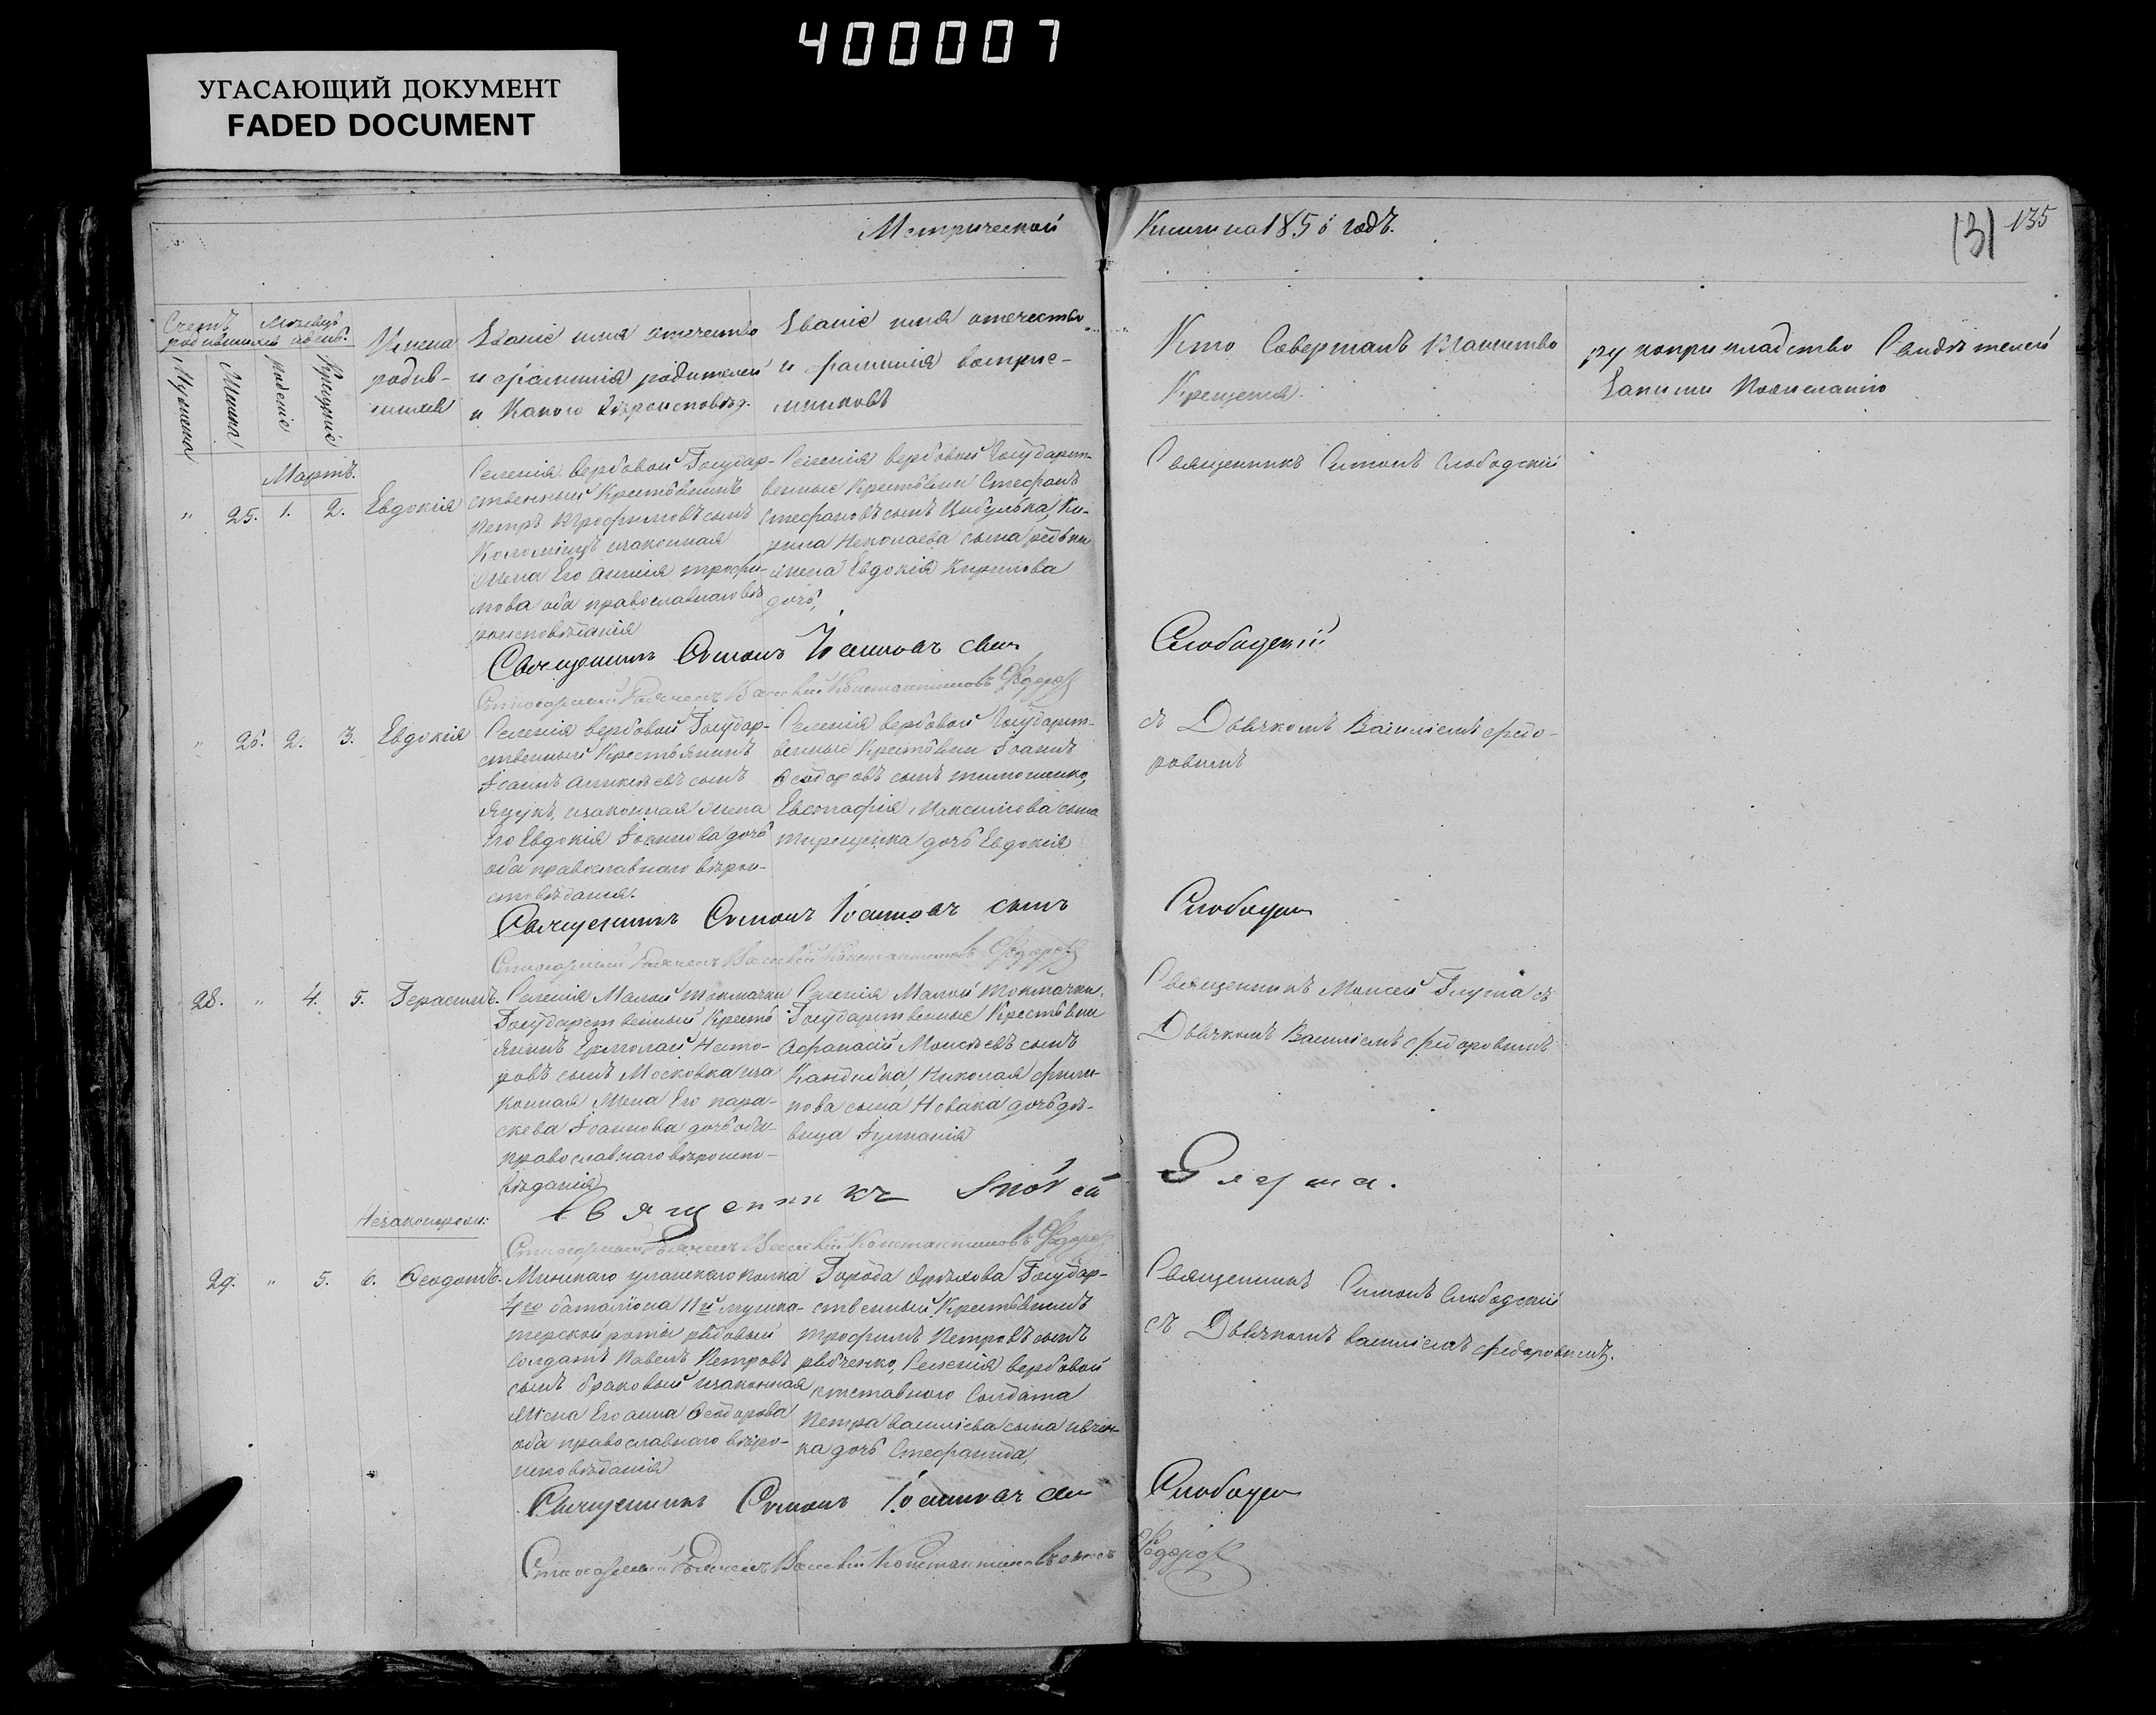 400007
УГАСАЮЩИЙ ДОКУМЕНТ
FADED DOCUMENT
Метрической
Книги на 185 годъ.
131 135
Счетъ родившихся
Мужеска
Женска
Месяцъ
Рожденіе
Крещеніе
Имена
родив-
шихся
Званіе имя отчество
и фамилія родителей
и Какого Вѣроисповѣд.
Званіе имя отчество
и фамилія воспріе-
мниковъ
Кто Совершалъ Таинство
Крещенія.
рукоприкладство Свидѣтелей
Записи По желанію
Мартъ.
" 25. 1. 2. Евдокія
Селенія Вербовой Государ-
ственный Крестьянинъ
Петръ Трофимовъ сынъ
Коломіецъ и законная
Жена Его Анна Трофи-
мова оба православнаго вѣ
роисповѣданія
Селенія Вербовой Государст-
венные Крестьяни Стефанъ
Стефановъ сынъ Цибулька, Ки-
рила Николаева сына
жена Евдокія Кирилова
дочь,
Священникъ Симонъ Слободскій
Священникъ Симонъ Іоанновъ сынъ
Слободскій
Василій Константиновъ Федоровъ
" 26. 2. 3. Евдокія
Селенія Вербовой Государ-
ственный Крестьянинъ
Іоаннъ сынъ
Яцукъ, и законная Жена
Его Евдокія Іоаннова дочь
оба православнаго вѣрои-
сповѣданія.
Селенія Вербовой Государст-
венные Крестьяни Іоаннъ
Ѳеодоровъ сынъ Тимошенко,
Максимова сына
дочь Евдокія
съ Дьячкомъ Василіемъ Федо-
ровымъ
Священникъ Симонъ Іоанновъ сынъ
Слободскій
Василій Константиновъ Федоровъ
28. " 4. 5. Герасимъ.
Селенія Малой Токмачки
Государственный Кресть
янинъ Ермолай Несто-
ровъ сынъ Московка и за
конная Жена Его пара-
скева Іоаннова дочь оба
православнаго вѣроиспо-
вѣданія
Селенія Малой Токмачки,
Государственные Крестьяни
Афанасій Моисѣевъ сынъ
Кандыбка, Николая Фили-
пова сына Новака дочь дѣ-
вица Іуліанія
Священникъ Моисей Глушасъ
Дьячкомъ Василіемъ Федоровымъ
Священникъ
Глуша.
Василій Константиновъ Федоровъ
Незаконорож:
29. " 5. 6. Ѳеодотъ.
Минскаго уланскаго полка
4го баталіона 11й мушка-
терской роты рядовый
солдатъ Павелъ Петровъ
сынъ и законная
Жена Его Анна Ѳеодорова
оба православнаго вѣро-
исповѣданія
Города Орѣхова Государ-
ственный Крестьянинъ
Трофимъ Петровъ сынъ
рябченко, Селенія Вербовой
отставного Солдата
Петра Василіева сына
ка дочь Стефанида,
Священникъ Симонъ Слободскій
съ Дьячкомъ Василіемъ Федоровымъ.
Священникъ Симонъ Іоанновъ сынъ
Слободскій
Василій Константиновъ сынъ Федоровъ